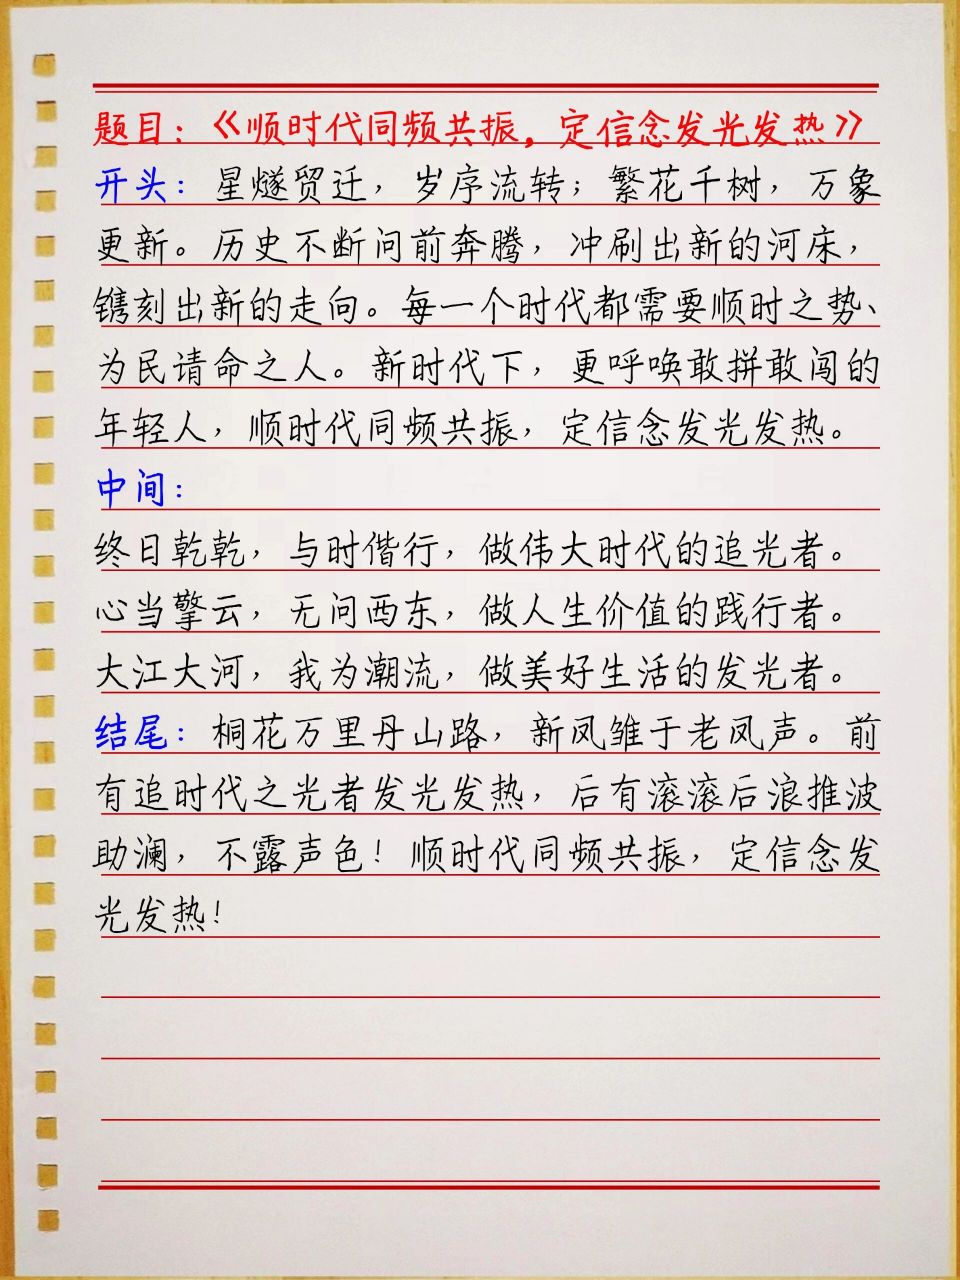 题目：《顺时代同频共振，定信念发光发热》
开头：星燧贸迁，岁序流转；繁花千树，万象
更新。历史不断问前奔腾，冲刷出新的河床，
镌刻出新的走向。每一个时代都需要顺时之势、
为民请命之人。新时代下，更呼唤敢拼敢闯的
年轻人，顺时代同频共振，定信念发光发热。
中间：
终日乾乾，与时偕行，做伟大时代的追光者。
心当擎云，无问西东，做人生价值的践行者。
大江大河，我为潮流，做美好生活的发光者。
结尾：桐花万里丹山路，新凤雏于老凤声。前
有追时代之光者发光发热，后有滚滚后浪推波
助澜，不露声色！顺时代同频共振，定信念发
光发热！